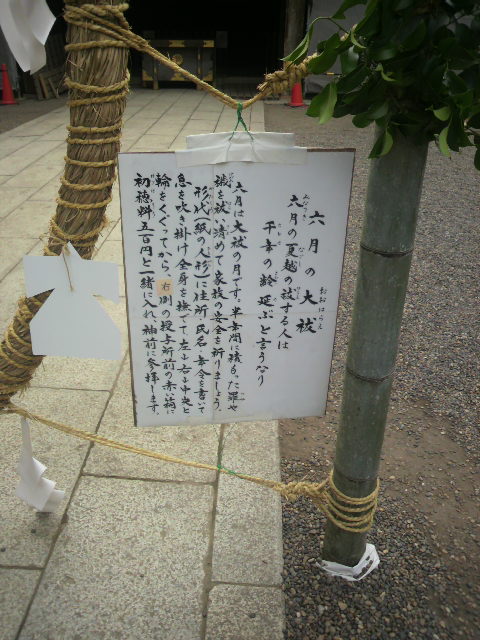 六月の大祓
おおはらえ
六月の夏越の祓する人は
みなづき
なごし
千年の齢延ぶと言うなり
六月は大祓の月です。半年間に積もった罪や
穢を祓い清めて家族の安全を祈りましょう。
形代(紙の人形)に住所・氏名・年令を書いて
息を吹き掛け全身を撫でて左・右・中央と
輪をくぐってから、右側の授与所前の赤い箱に
初穂料五百円と一緒に入れ、神前に参拝します。